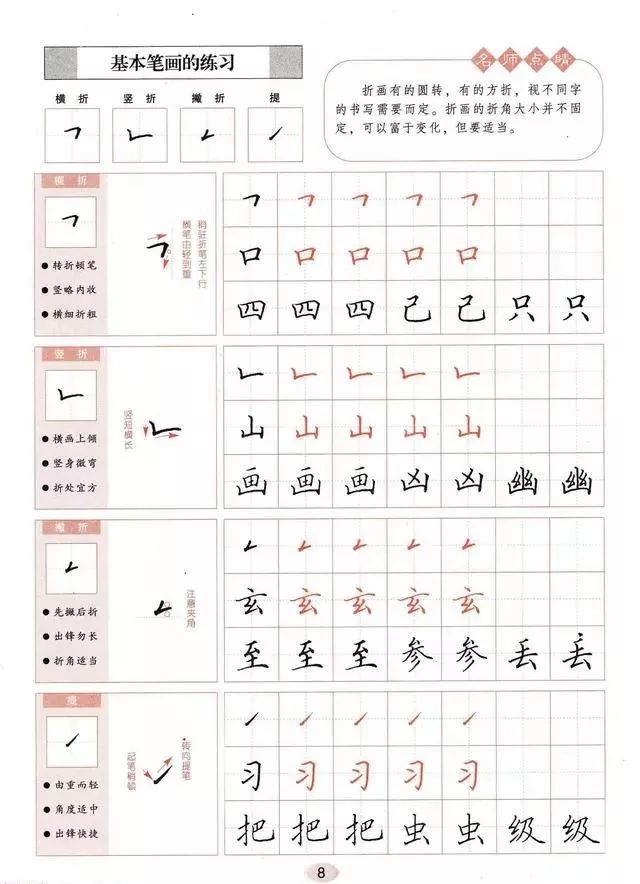 基本笔画的练习
名师点睛
横折 竖折 撇折 提
折画有的圆转，有的方折，视不同字
的书写需要而定。折画的折角大小并不固
定，可以富于变化，但要适当。
横折
转折顿笔
竖略内收
横细折粗
横笔由轻到重
稍驻折笔左下行
口 口 口 口 口
四 四 四 己 己 只 只
竖折
横画上倾
竖身微弯
折处宜方
竖短横长
山 山 山 山 山
画 画 画 凶 凶 幽 幽
撇折
先撇后折
出锋勿长
折角适当
注意夹角
玄 玄 玄 玄 玄
至 至 至 参 参 丢 丢
提
由重而轻
角度适中
出锋快捷
起笔稍顿
转向提笔
习 习 习 习 习
把 把 把 虫 虫 级 级
8